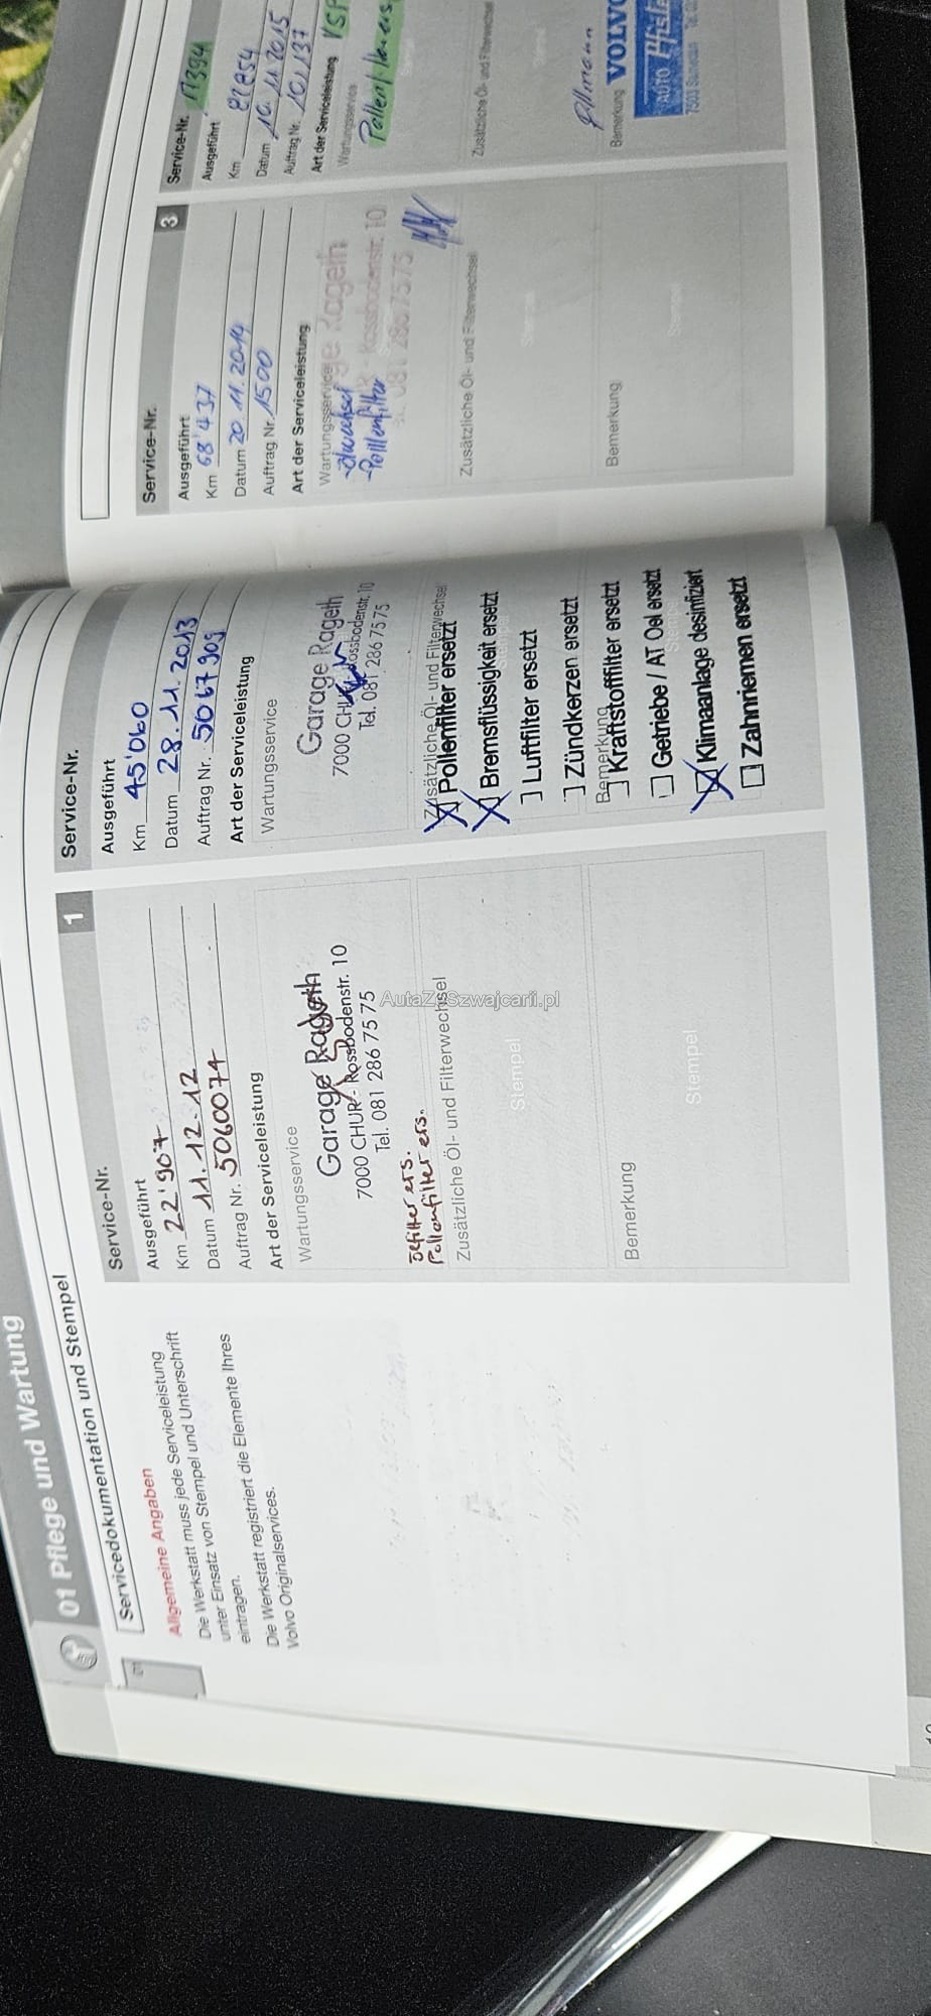 01 Pflege und Wartung
Servicedokumentation und Stempel
01
Allgemeine Angaben
Die Werkstatt muss jede Serviceleistung
unter Einsatz von Stempel und Unterschrift
eintragen.
Die Werkstatt registriert die Elemente Ihres
Volvo Originalservices.
Service-Nr. 1
Ausgeführt
Km 22'907
Datum 11.12.12
Auftrag Nr. 5060074
Art der Serviceleistung
Wartungsservice
Garage Rageth
7000 CHUR - Rossbodenstr. 10
Tel. 081 286 75 75
Oelfilter ers.
Pollenfilter ers.
Zusätzliche Öl- und Filterwechsel
Stempel
Bemerkung
Stempel
Service-Nr.
Ausgeführt
Km 45'060
Datum 28.11.2013
Auftrag Nr. 5067909
Art der Serviceleistung
Wartungsservice
Garage Rageth
7000 CHUR Rossbodenstr. 10
Tel. 081 286 75 75
Zusätzliche Öl- und Filterwechsel
Pollenfilter ersetzt
Bremsflüssigkeit ersetzt
Luftfilter ersetzt
Zündkerzen ersetzt
Bemerkung
Kraftstofffilter ersetzt
Getriebe / AT Oel ersetzt
Klimaanlage desinfiziert
Zahnriemen ersetzt
Service-Nr. 3
Ausgeführt
Km 68'437
Datum 20.11.2014
Auftrag Nr. 1500
Art der Serviceleistung
Wartungsservice
Garage Rageth
-Ölwechsel
-Pollenfilter
Rossbodenstr. 10
081 286 75 75
Zusätzliche Öl- und Filterwechsel
Bemerkung
Service-Nr.
Ausgeführt
Km
Datum 10.11.2015
Auftrag Nr. 101137
Art der Serviceleistung
Wartungsservice
Zusätzliche Öl- und Filterwechsel
Bemerkung
VOLVO
AUTO Pfister
AutaZeSzwajcarii.pl